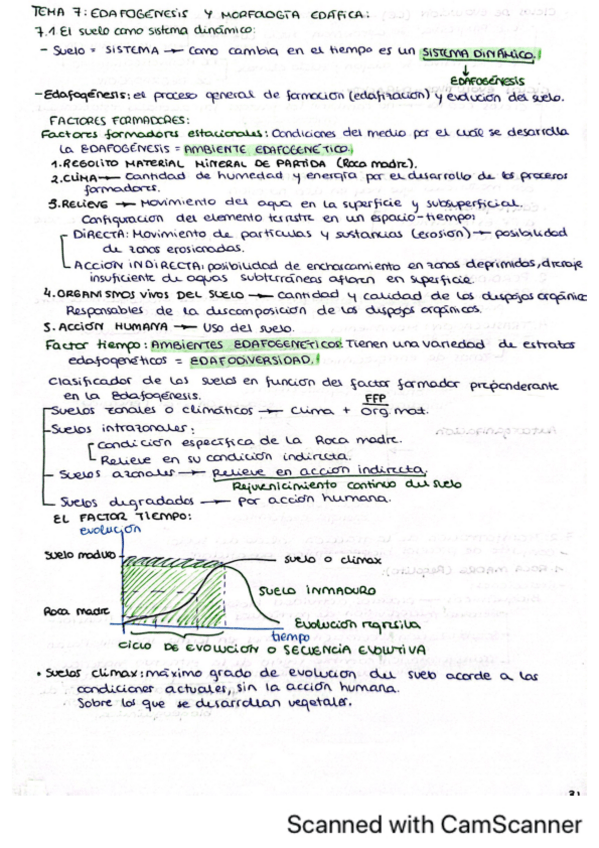 TEMA 7: EDAFOGÉNESIS Y MORFOLOGÍA EDÁFICA:
7.1 El suelo como sistema dinámico:
- Suelo = SISTEMA → Como cambia en el tiempo es un SISTEMA DINÁMICO.
↓
EDAFOGÉNESIS
- Edafogénesis: el proceso general de formación (edafización) y evolución del suelo.
FACTORES FORMADORES:
Factores formadores estacionales: Condiciones del medio por el cual se desarrolla
la EDAFOGÉNESIS = AMBIENTE EDAFOGENÉTICO.
1. REGOLITO MATERIAL MINERAL DE PARTIDA (Roca madre).
2. CLIMA → Cantidad de humedad y energía por el desarrollo de los procesos
formadores.
3. RELIEVE → Movimiento del agua en la superficie y subsuperficial.
Configuración del elemento terrestre en un espacio-tiempo:
DIRECTA: Movimiento de partículas y sustancias (erosión) → posibilidad
de zonas erosionadas.
ACCIÓN INDIRECTA: posibilidad de encharcamiento en zonas deprimidas, drenaje
insuficiente de aguas subterráneas afloran en superficie.
4. ORGANISMOS VIVOS DEL SUELO → cantidad y calidad de los despojos orgánic
Responsables de la descomposición de los despojos orgánicos.
5. ACCIÓN HUMANA → Uso del suelo.
Factor tiempo: AMBIENTES EDAFOGENÉTICOS. Tienen una variedad de estratos
edafogenéticos = EDAFODIVERSIDAD.
Clasificador de los suelos en función del factor formador preponderante
en la Edafogénesis. FFP
Suelos zonales o climáticos → Clima + org. mat.
- Suelos intrazonales:
Condición específica de la Roca madre.
Relieve en su condición indirecta.
- Suelos azonales → Relieve en acción indirecta.
Rejuvenicimiento continuo del suelo
Suelos degradados → por acción humana.
EL FACTOR TIEMPO:
evolución
Suelo maduro
suelo o climax
SUELO INMADURO
Roca madre
Evolución regresiva
tiempo
CICLO DE EVOLUCIÓN O SECUENCIA EVOLUTIVA
• Suelos climax: máximo grado de evolución del suelo acorde a las
condiciones actuales, sin la acción humana.
Sobre los que se desarrollan vegetales.
31
Scanned with CamScanner